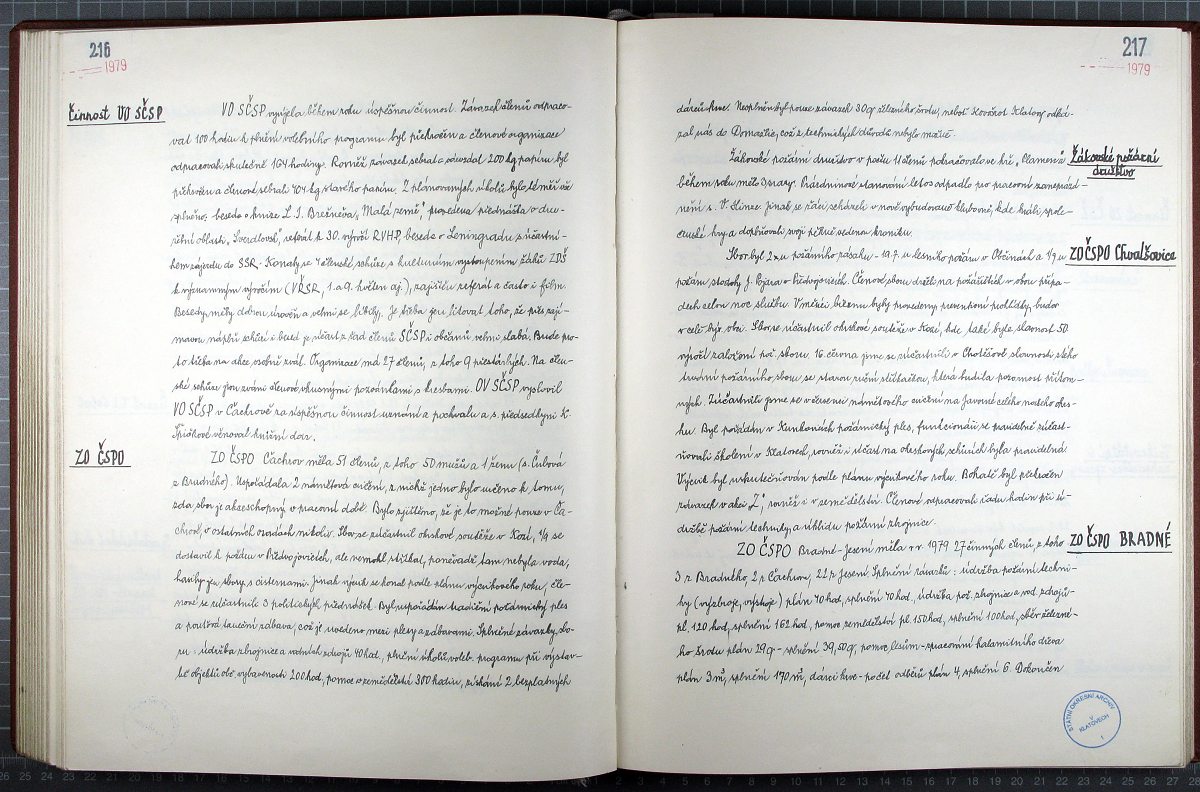 216
1979
Činnost VO SČSP
VO SČSP vyvíjela během roku úspěšnou činnost. Závazek členů odpraco-
vat 100 hodin k plnění volebního programu byl překročen a členové organizace
odpracovali skutečně 164 hodiny. Rovněž závazek sebrat a odevzdat 200 kg papíru byl
překročen a členové sebrali 404 kg starého papíru. Z plánovaných úkolů bylo téměř vše
splněno: beseda o knize L. I. Brežněva „Malá země", provedena přednáška o dru-
žební oblasti „Sverdlovsk", referát k 30. výročí RVHP, beseda o Leningradu s účastní-
kem zájezdu do SSR. Konaly se 4 členské schůze s kulturním vystoupením žáků ZDŠ
k významným výročím (VŘSR, 1. a 9. květen aj.), zajištěn referát a často i film.
Besedy měly dobrou úroveň a velmi se líbily. Je třeba jen litovat toho, že přes zají-
mavou náplň schůzí i besed je účast z řad členů SČSP i občanů velmi slabá. Bude pro-
to třeba na akce osobně zvát. Organizace má 27 členů, z toho 9 přestárlých. Na člen-
ské schůze jsou zváni členové vkusnými pozvánkami s kresbami. OV SČSP vyslovil
VO SČSP v Čachrově za úspěšnou činnost uznání a pochvalu a s. předsedkyni K.
věnoval knižní dar.
ZO ČSPO
ZO ČSPO Čachrov měla 51 členů, z toho 50 mužů a 1 ženu (s. Čubová
z Bradného). Uspořádala 2 námětová cvičení, z nichž jedno bylo určeno k tomu,
zda sbor je akceschopný v pracovní době. Bylo zjištěno, že je to možné pouze v Ča-
chrově, v ostatních osadách nikoliv. Sbor se zúčastnil okrskové soutěže v Kozí, 1/9 se
dostavil k požáru v Předvojovicích, ale nemohl stříkat, poněvadž tam nebyla voda,
hasily jen sbory s cisternami. Jinak výcvik se konal podle plánu výcvikového roku, čle-
nové se zúčastnili 3 politických přednášek. Byl uspořádán tradiční požárnický ples
a pouťová taneční zábava, což je uvedeno mezi plesy a zábavami. Splněné závazky sbo-
ru: údržba zbrojnice a vodních zdrojů 40 hod, plnění úkolů voleb. programu při výstav-
bě objektů obč. vybavenosti 200 hod, pomoc v zemědělství 300 hodin, získání 2 bezplatných
217
1979
dárců krve. Nesplněn byl pouze závazek 30 q železného šrotu, neboť Kovošrot Klatovy odká-
zal nás do Domažlic, což z technických důvodů nebylo možné.
Žákovské požární
družstvo
Žákovské požární družstvo v počtu 11 členů pokračovalo ve hře „Plamen" a
během roku mělo 3 srazy. Prázdninové stanování letos odpadlo pro pracovní zaneprázd-
nění s. V. Jinak se žáci scházeli v nově vybudované klubovně, kde hráli spole-
čenské hry a doplňovali svoji pěkně vedenou kroniku.
ZO ČSPO Chvalšovice
Sbor byl 2x u požárního zásahu - 19.7. u lesního požáru v Občinách a 1/9 u
požáru stodoly J. Pojara v Předvojovicích. Členové sboru drželi na požářištích v obou přípa-
dech celou noc službu. V měsíci březnu byly provedeny preventivní prohlídky budov
v celé býv. obci. Sbor se účastnil okrskové soutěže v Kozí, kde také byla slavnost 50.
výročí založení pož. sboru. 16. června jsme se zúčastnili v Chotěšově slavnosti 100letého
trvání požárního sboru se starou ruční stříkačkou, která budila pozornost přítom-
ných. Zúčastnili jsme se v červenci námětového cvičení na Javorné celého našeho okrs-
ku. Byl pořádán v Kunkovicích požárnický ples, funkcionáři se pravidelně zúčast-
ňovali školení v Klatovech, rovněž i účast na okrskových schůzích byla pravidelná.
Výcvik byl uskutečňován podle plánu výcvikového roku. Bohatě byl překročen
závazek v akci „Z", rovněž i v zemědělství. Členové odpracovali řadu hodin při ú-
držbě požární techniky a vzhledu požární zbrojnice.
ZO ČSPO BRADNÉ
ZO ČSPO Bradné-Jesení měla v r. 1979 27 činných členů, z toho
3 z Bradného, 2 z Čachrova, 22 z Jesení. Splnění závazků: údržba požární techni-
ky (výzbroje, výstroje) plán 40 hod, splnění 40 hod, údržba pož. zbrojnice a vod. zdrojů-
pl. 120 hod, splnění 162 hod, pomoc zemědělství pl. 150 hod, splnění 100 hod, sběr železné-
ho šrotu plán 29 q - splnění 39,50 q, pomoc lesům - zpracování kalamitního dřeva
plán 3 m³, splnění 170 m³, dárci krve - počet odběrů plán 4, splnění 6. Dokončen
STÁTNÍ OKRESNÍ ARCHIV
V
KLATOVECH
1